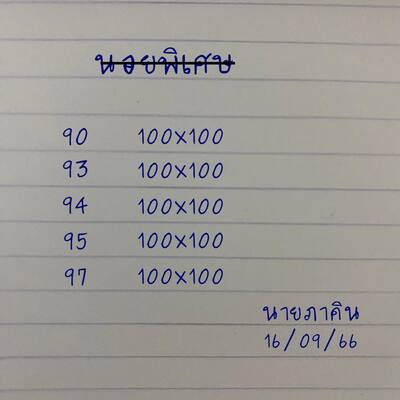 นอยพิเศษ
90 100x100
93 100x100
94 100x100
95 100x100
97 100x100
นายภาคิน
16/09/66